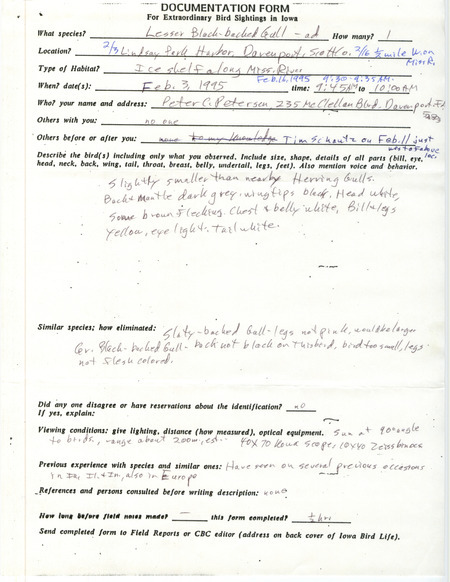 DOCUMENTATION FORM
For Extraordinary Bird Sightings in Iowa
What species? Lesser Black-backed Gull - ad How many? 1
Location? 2/3 Lindsay Park Harbor, Davenport, Scott Co. 2/16 ½ mile W on Miss R.
Type of Habitat? Ice shelf along Miss. River
Feb. 16, 1995 9:30-9:35 AM
When? date(s): Feb. 3, 1995 time: 9:45 AM to 10:00 AM
Who? your name and address: Peter C. Petersen, 235 McClellan Blvd. Davenport, IA
Others with you: no one
Others before or after you: none to my knowledge Tim Schantz on Feb. 11 just
Describe the bird(s) including only what you observed. Include size, shape, details of all parts (bill, eye,
head, neck, back, wing, tail, throat, breast, belly, undertail, legs, feet). Also mention voice and behavior.
Slightly smaller than nearby Herring Gulls.
Back & mantle dark grey, wingtips black. Head white,
some brown flecking. Chest & belly white, Bill & legs
yellow, eye light. Tail white.
Similar species; how eliminated: Slaty-backed Gull - legs not pink, would be larger
Gr. Black-backed Gull - back not black on this bird, bird too small, legs
not flesh colored.
Did any one disagree or have reservations about the identification? no
If yes, explain:
Viewing conditions: give lighting, distance (how measured), optical equipment. Sun at 90° angle
to birds, range about 200 m, est. 40X70 Kowa scope, 10X40 Zeiss binocs
Previous experience with species and similar ones: Have seen on several previous occasions
in Ia, Il. & In, also in Europe
References and persons consulted before writing description: none
How long before field notes made? — this form completed? ½ hr.
Send completed form to Field Reports or CBC editor (address on back cover of Iowa Bird Life).